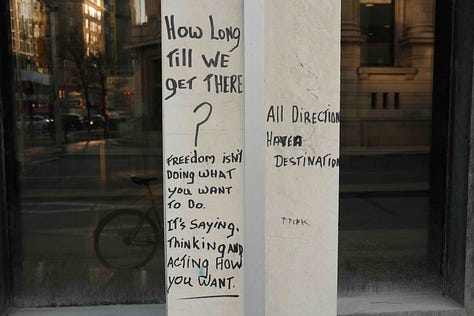 How Long
Till WE
gET THERE
?
FREEDOM isn't
DOING WHAT
you WANT
TO DO.
It's SAYING,
THINKING AND
ACTING HOW
you WANT.
All Direction
HAVE A
DESTINATION